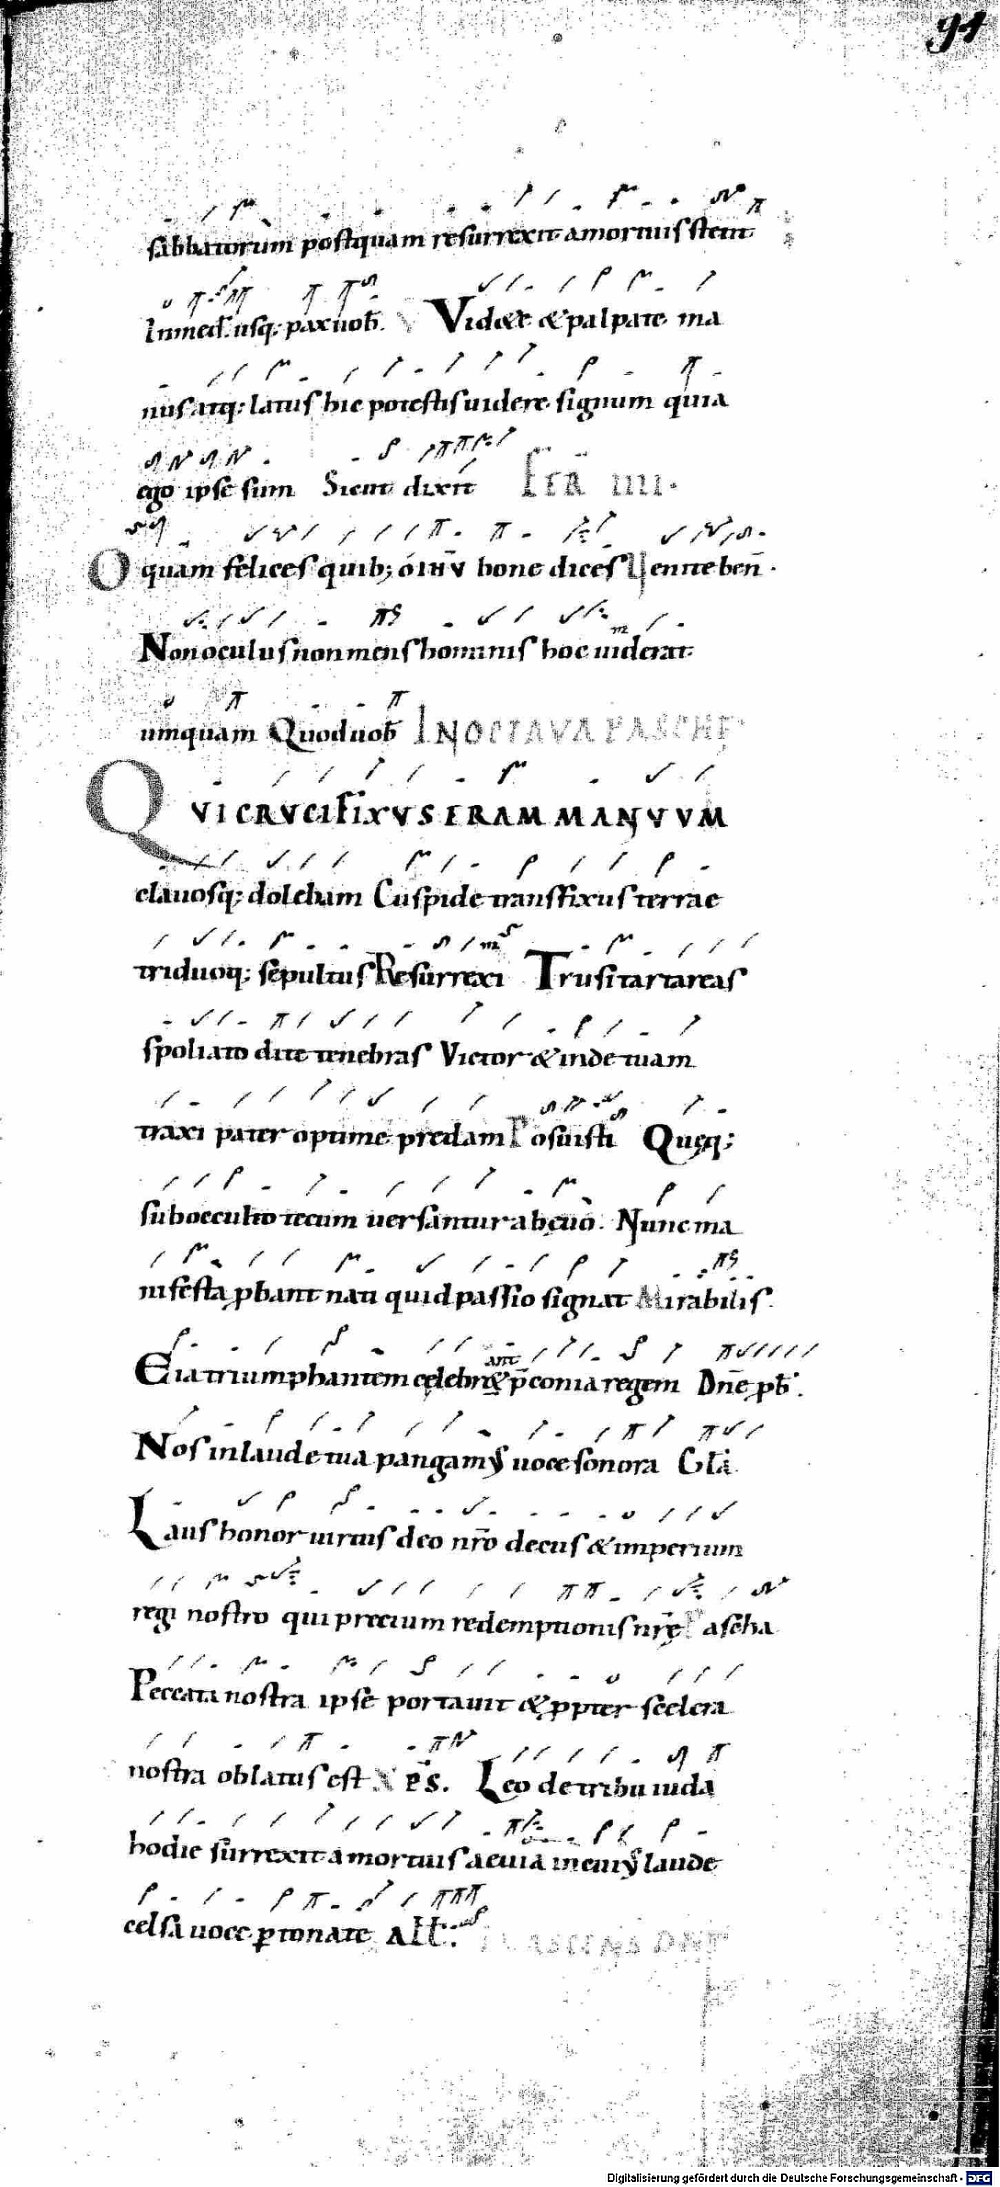 94
sabbatorum postquam resurrexit a mortuis stetit
In med. usq; pax uob̄. Videte & palpate ma
nus atq; latus hic potestis uidere signum quia
ego ipse sum Sicut dixit FERĀ IIII.
O quam felices quib; o ihū bone dices Uenite ben̄.
Non oculus non mens hominis hoc uiderat
umquam Quod uob̄ IN OCTAVA PASCHE
QVI CRVCIFIXVS ERAM MANVVM
clauosq; dolebam Cuspide transfixus terrae
triduoq; sepultus Resurrexi Trusi tartareas
spoliato dite tenebras Victor & inde tuam
traxi pater optime predam Posuisti Quęq;
sub occulto tecum uersantur ab ęuo. Nunc ma
nifesta ꝓbant nati quid passio signat Mirabilis.
Eia triumphantem celebret p̄conia regem Dn̄e ꝓb.
Nos in laude tua pangamꝰ uoce sonora Gl̄a
Laus honor uirtus deo nr̄o decus & imperium
regi nostro qui precium redemptionis nr̄ę Pascha
Peccata nostra ipse portauit & ꝓpter scelera
nostra oblatus est XP̄S. Leo de tribu iuda
hodie surrexit a mortuis aeuia in cuiꝰ laude
celsa uoce ꝑtonate All:
Digitalisierung gefördert durch die Deutsche Forschungsgemeinschaft - DFG